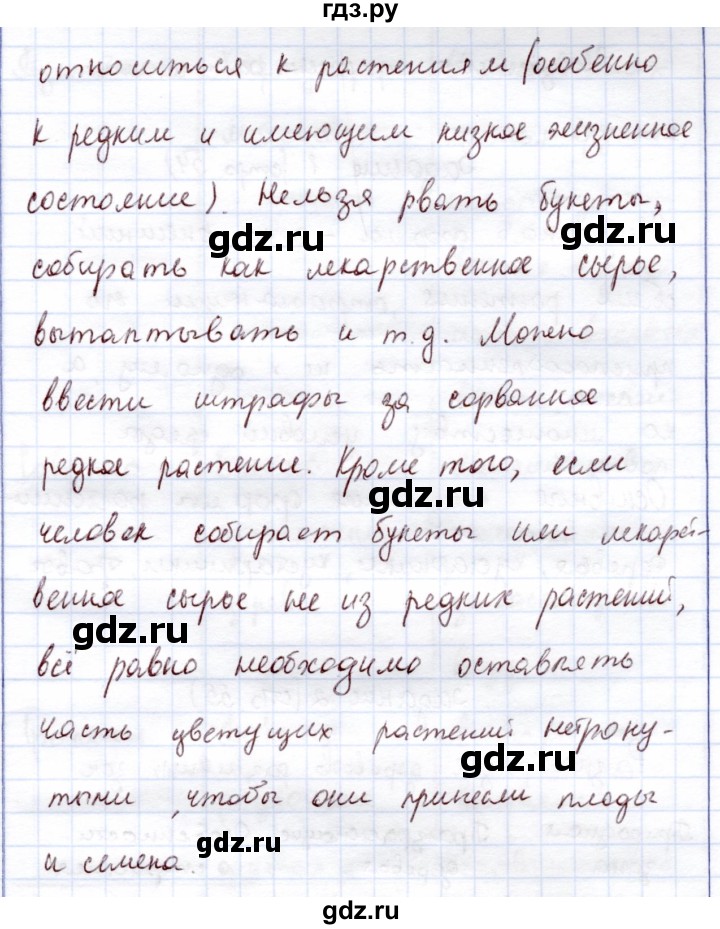 гдз.ру
относиться к растениям (особенно
к редким и имеющим низкое жизненное
состояние). Нельзя рвать букеты,
gdz.ru
gdz.ru
собирать как лекарственное сырье,
вытаптывать и т.д. Можно
ввести штрафы за сорванное
редкое растение. Кроме того, если
gdz.ru
человек собирает букеты или лекарст-
венное сырье не из редких растений,
gdz.ru
всё равно необходимо оставлять
часть цветущих растений нетрону-
gdz.ru
тыми, чтобы они принесли плоды
и семена.
gdz.ru
gdz.ru